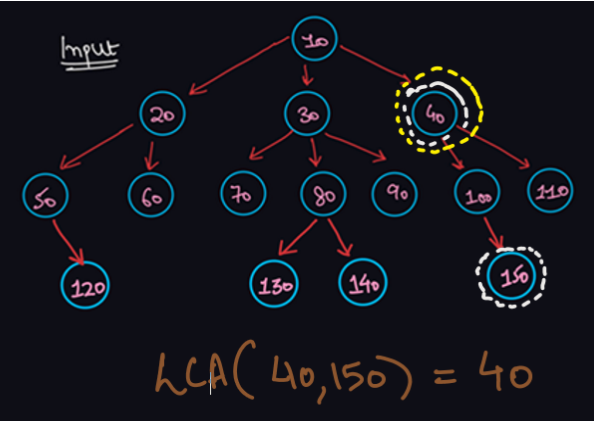 Input
10
20 30 40
50 60 70 80 90 100 110
120 130 140 150
LCA(40,150) = 40